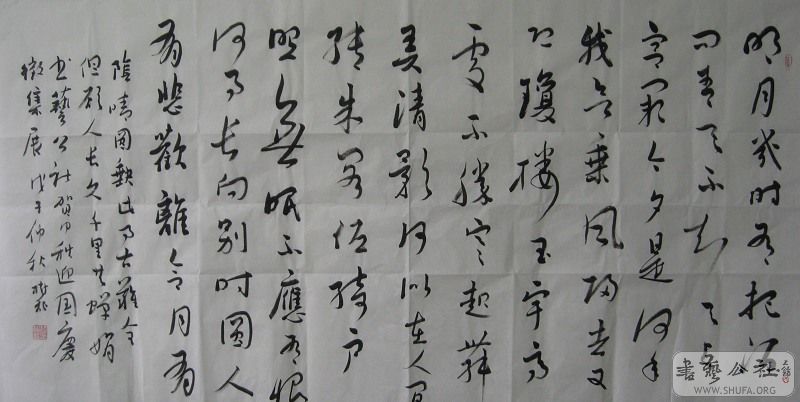 明月幾时有把酒
问青天不知天上
宫阙今夕是何年
我欲乘风归去又
恐瓊楼玉宇高
處不勝寒起舞
弄清影何似在人间
转朱阁低绮户
照無眠不應有恨
何事长向别时圆人
有悲歡離合月有
陰晴圆缺此事古難全
但願人长久千里共嬋娟
书藝公社贺中秋迎国慶
徵集展 戊子仲秋
書藝公社
WWW.SHUFA.ORG